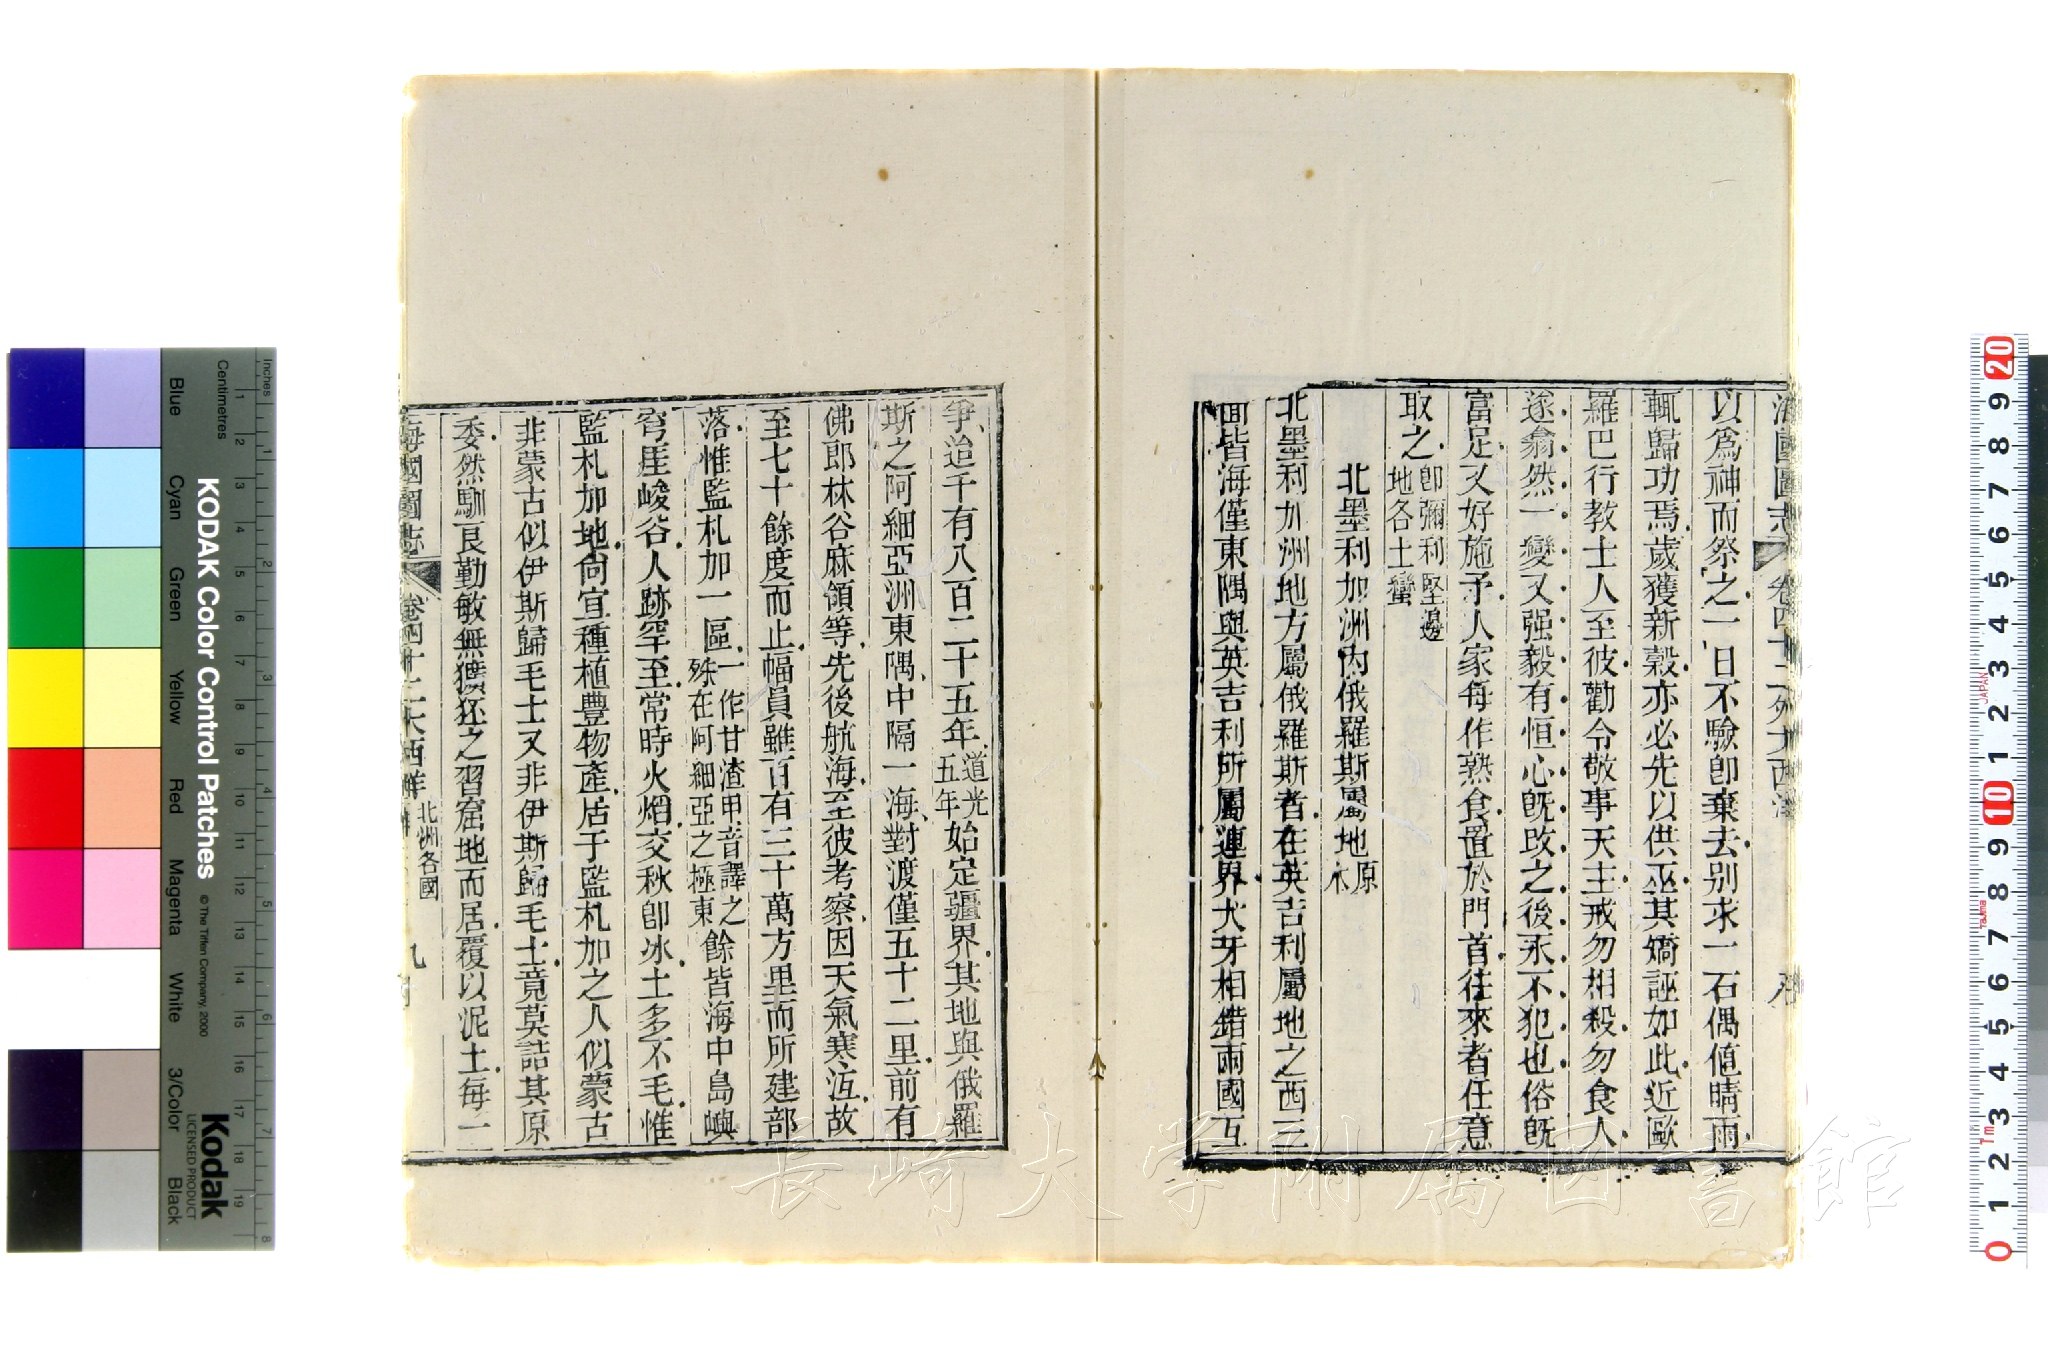 以爲神而祭之一日不驗卽棄去别求一石偶値晴雨
輒歸功焉歲獲新穀亦必先以供巫其矯誣如此近歐
羅巴行教士人至彼勸令敬事天主戒勿相殺勿食人
遂翕然一變又强毅有恒心旣改之後永不犯也俗旣
富足又好施予人家每作熟食置於門首往來者任意
取之卽彌利堅邊
地各土蠻
北墨利加洲內俄羅斯屬地原
北墨利加洲地方屬俄羅斯者在英吉利屬地之西三
面皆海僅東隅與英吉利所屬連界犬牙相錯兩國互
爭迨千有八百二十五年道光
五年始定疆界其地與俄羅
斯之阿細亞洲東隅中隔一海對渡僅五十二里前有
佛郎林谷麻領等先後航海至彼考察因天氣寒冱故
至七十餘度而止幅員雖百有三十萬方里而所建部
落惟監札加一區一作甘渣甲音譯之
殊在阿細亞之極東餘皆海中島嶼
窮崖峻谷人跡罕至常時火烟交秋卽冰土多不毛惟
監札加地尙宜種植豐物產居于監札加之人似蒙古
非蒙古似伊斯歸毛士又非伊斯歸毛士竟莫詰其原
委然馴良勤敏無獷狉之習窟地而居覆以泥土每一
海國圖志
卷四十二大西洋
北洲各國
九
長崎大学附属図書館
KODAK Color Control Patches
© The Tiffen Company, 2000
Kodak
LICENSED PRODUCT
Inches
Centimetres
Blue
Cyan
Green
Yellow
Red
Magenta
White
3/Color
Black